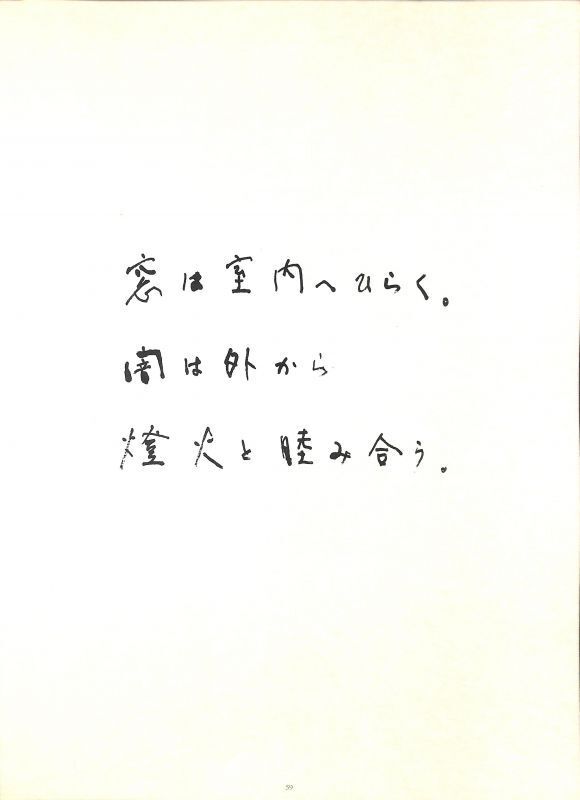 窓は室内へひらく。
闇は外から
燈火と睦み合う。
59